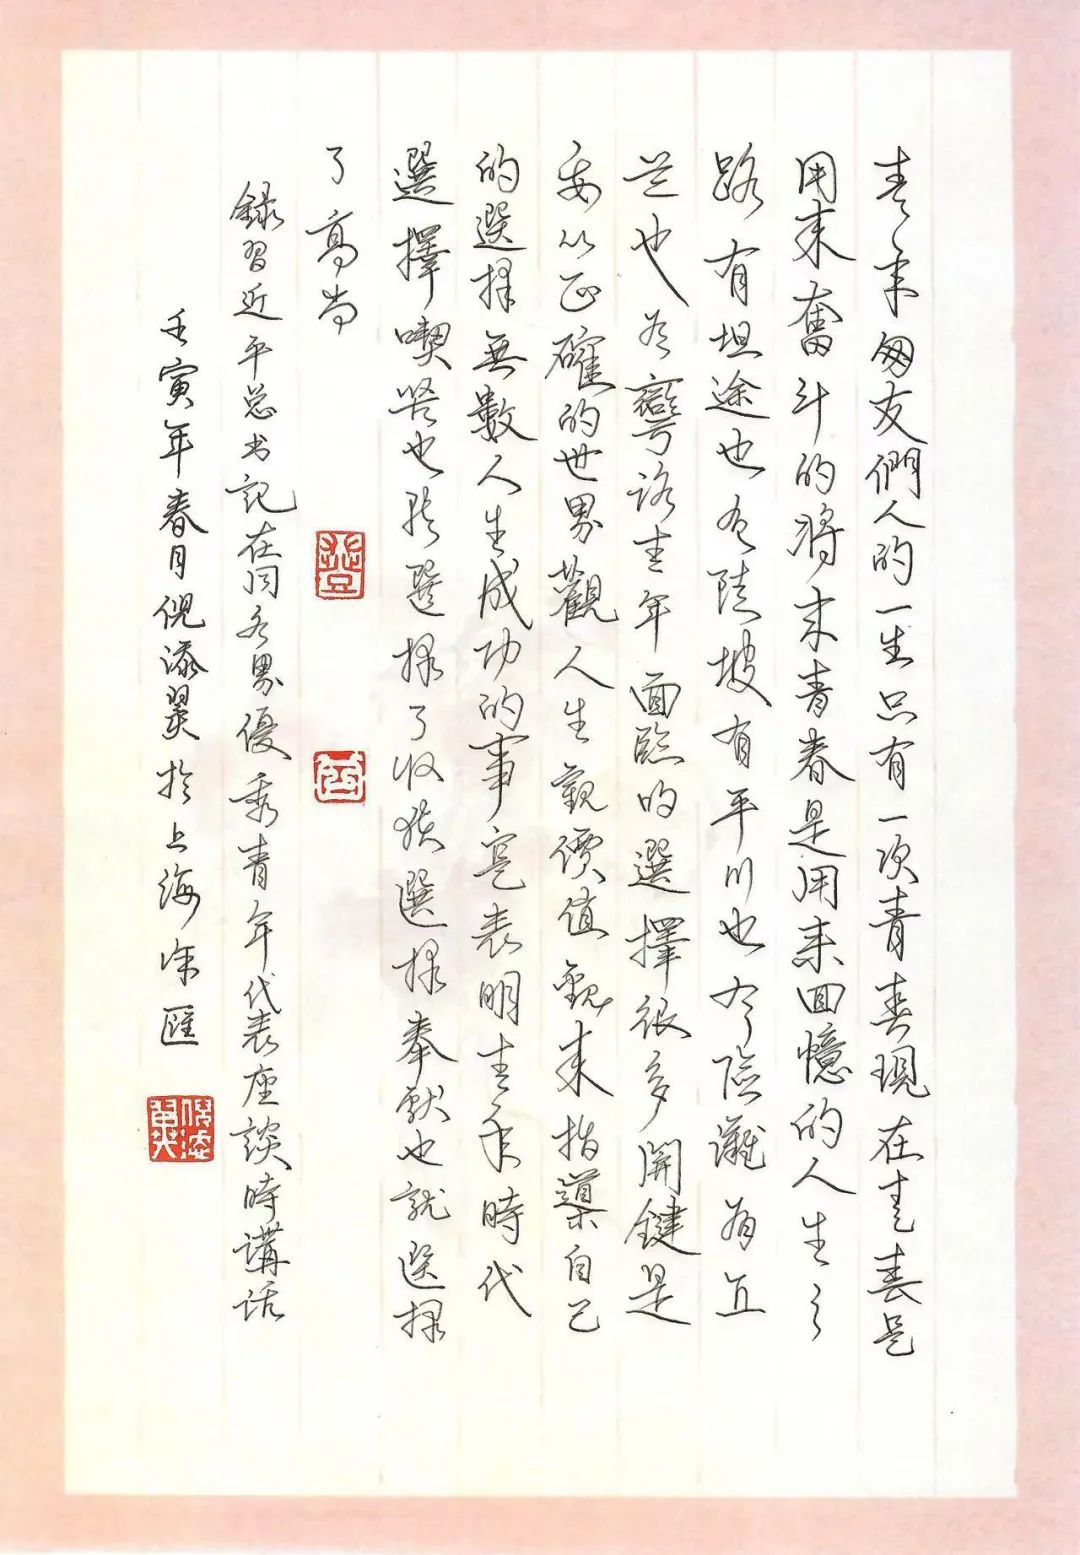 青年朋友們人的一生只有一次青春現在青春是
用来奮斗的將来青春是用来回憶的人生之
路有坦途也有陡坡有平川也有險灘有直
道也有彎路青年面臨的選擇很多関鍵是
要以正確的世界觀人生觀價值觀来指導自己
的選擇無數人生成功的事實表明青年時代
選擇喫苦也就選擇了收穫選擇奉獻也就選擇
了高尚
録習近平总书記在同各界優秀青年代表座談時講話
壬寅年春月倪添翼於上海徐匯
倪添翼